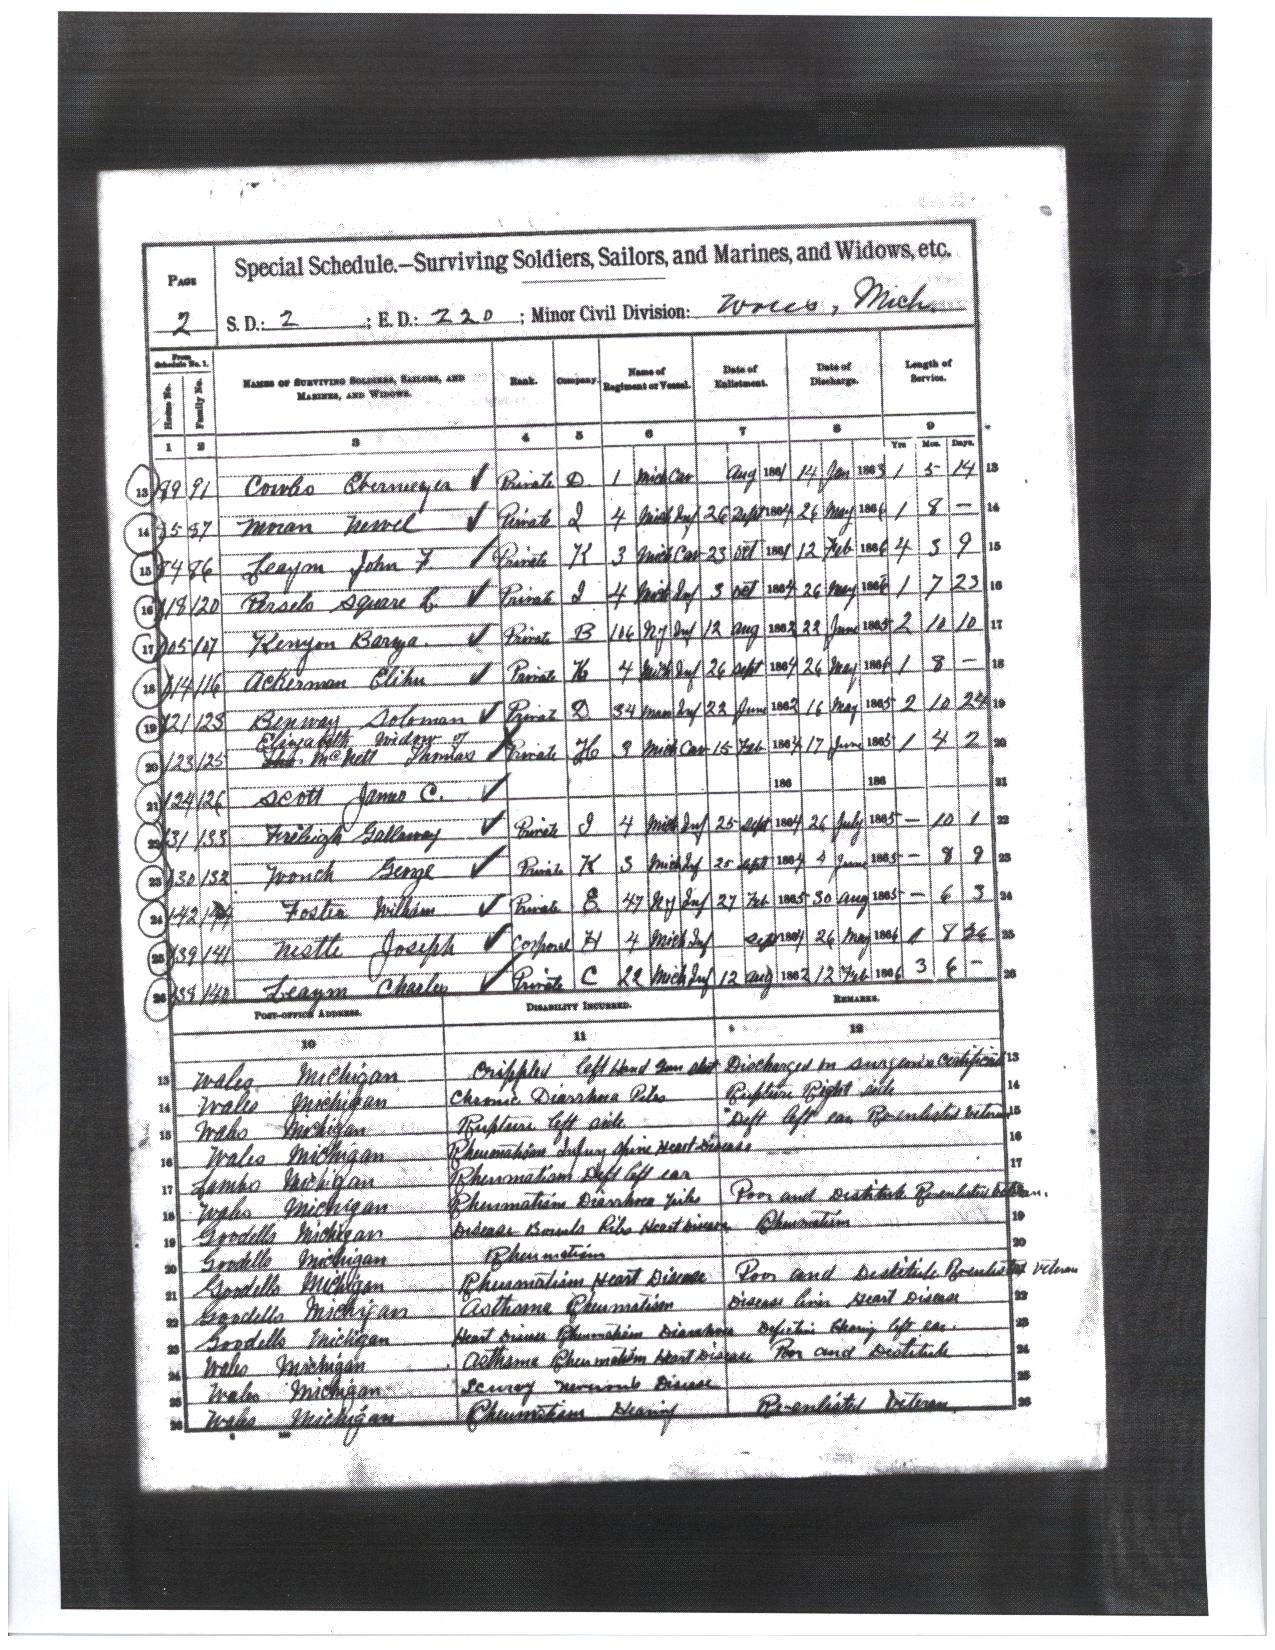 PAGE
2
Special Schedule.—Surviving Soldiers, Sailors, and Marines, and Widows, etc.
S. D.: 2 ; E. D.: 220 ; Minor Civil Division: Wales, Mich.
From Schedule No. 1.
House No. Family No. NAMES OF SURVIVING SOLDIERS, SAILORS, AND MARINES, AND WIDOWS. Rank. Company. Name of Regiment or Vessel. Date of Enlistment. Date of Discharge. Length of Service.
1 2 3 4 5 6 7 8 9
Yrs. Mos. Days.
13 89 91 Ebermeyer Private D. 1 Mich Cav Aug 1861 14 Jan 1863 1 5 14 13
14 85 87 Moran Newel Private I 4 Mich Inf 26 Sept 1864 26 May 1866 1 8 — 14
15 84 86 Leaym John F. Private K 3 Mich Cav 23 Oct 1861 12 Feb 1866 4 3 9 15
16 118 120 Persels Square Private I 4 Mich Inf 3 Oct 1864 26 May 1866 1 7 23 16
17 105 107 Kenyon Barza. Private B 106 NY Inf 12 Aug 1862 22 June 1865 2 10 10 17
18 114 116 Ackerman Elihu Private K 4 Mich Inf 26 Sept 1864 26 May 1866 1 8 — 18
19 121 123 Benway Soloman Private D 34 Mass Inf 22 June 1862 16 May 1865 2 10 24 19
Elizabeth Widow of
20 123 125 McNett Thomas Private H 3 Mich Cav 15 Feb 1864 17 June 1865 1 4 2 20
21 124 126 Scott James C. 186 186 21
22 131 133 Freleigh Gallaway Private I 4 Mich Inf 25 Sept 1864 26 July 1865 — 10 1 22
23 130 132 Wonch George Private K 3 Mich Inf 25 Sept 1864 4 June 1865 — 8 9 23
24 142 144 Foster William Private E. 47 NY Inf 27 Feb 1865 30 Aug 1865 — 6 3 24
25 139 141 Nestle Joseph Corporal H 4 Mich Inf Sept 1864 26 May 1866 1 8 26 25
26 138 140 Leaym Charles Private C 22 Mich Inf 12 Aug 1862 12 Feb 1866 3 6 — 26
POST-OFFICE ADDRESS. DISABILITY INCURRED. REMARKS.
10 11 12
13 Wales Michigan Crippled left Hand Gun shot Discharged on surgeon's certificate 13
14 Wales Michigan Chronic Diarrhoea Piles Rupture Right side 14
15 Wales Michigan Rupture left side Deft left ear Reenlisted Veteran 15
16 Wales Michigan Rheumatism Injury Spine Heart Disease 16
17 Lambs Michigan Rheumatism Deft left ear 17
18 Wales Michigan Rheumatism Diarrhoea Piles Poor and Destitute Reenlisted Veteran. 18
19 Goodells Michigan Disease Bowels Piles Heart Disease Rheumatism 19
20 Goodells Michigan Rheumatism 20
21 Goodells Michigan Rheumatism Heart Disease Poor and Destitute Reenlisted Veteran
22 Goodells Michigan Asthma Rheumatism Disease liver Heart Disease 22
23 Goodells Michigan Heart Disease Rheumatism Diarrhoea Defective Hearing left ear. 23
24 Wales Michigan Asthma Rheumatism Heart Disease Poor and Destitute 24
25 Wales Michigan Scurvy Disease 25
26 Wales Michigan Rheumatism Hearing Re-enlisted Veteran. 26